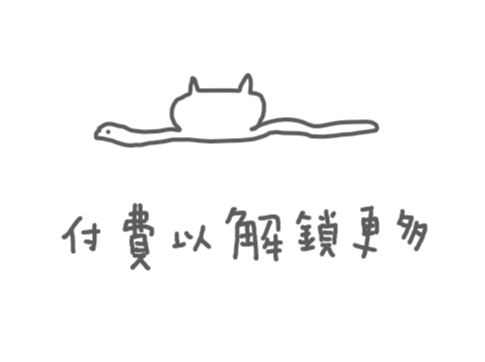 付費以解鎖更多